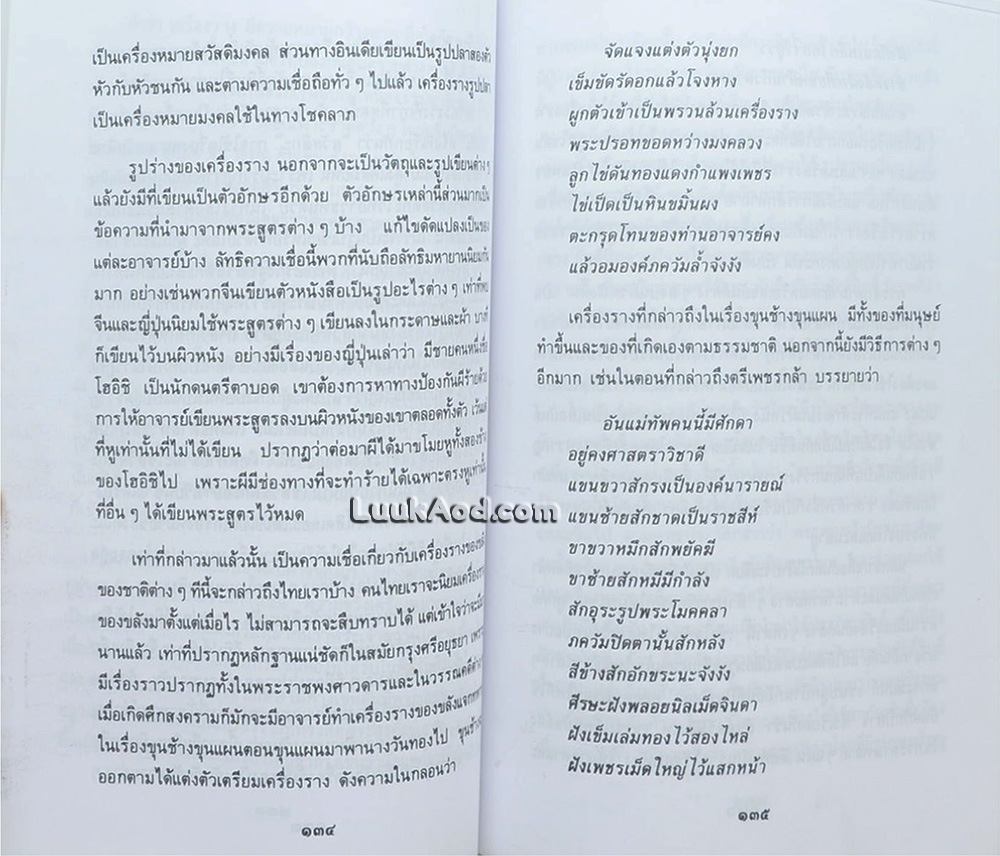 เป็นเครื่องหมายสวัสดิมงคล ส่วนทางอินเดียเขียนเป็นรูปปลาสองตัว
หัวกับหัวชนกัน และตามความเชื่อถือทั่ว ๆ ไปแล้ว เครื่องรางรูปปลา
เป็นเครื่องหมายมงคลใช้ในทางโชคลาภ
รูปร่างของเครื่องราง นอกจากจะเป็นวัตถุและรูปเขียนต่าง ๆ
แล้วยังมีที่เขียนเป็นตัวอักษรอีกด้วย ตัวอักษรเหล่านี้ส่วนมากเป็น
ข้อความที่นำมาจากพระสูตรต่าง ๆ บ้าง แก้ไขดัดแปลงเป็นของ
แต่ละอาจารย์บ้าง ลัทธิความเชื่อนี้พวกที่นับถือลัทธิมหายานนิยมกัน
มาก อย่างเช่นพวกจีนเขียนตัวหนังสือเป็นรูปอะไรต่าง ๆ เท่าที่พบ
จีนและญี่ปุ่นนิยมใช้พระสูตรต่าง ๆ เขียนลงในกระดาษและผ้า บางที
ก็เขียนไว้บนผิวหนัง อย่างมีเรื่องของญี่ปุ่นเล่าว่า มีชายคนหนึ่งชื่อ
โฮอิชิ เป็นนักดนตรีตาบอด เขาต้องการหาทางป้องกันผีร้ายด้วย
การให้อาจารย์เขียนพระสูตรลงบนผิวหนังของเขาตลอดทั้งตัว เว้นแต่
ที่หูเท่านั้นที่ไม่ได้เขียน ปรากฏว่าต่อมาผีได้มาขโมยหูทั้งสองข้าง
ของโฮอิชิไป เพราะผีมีช่องทางที่จะทำร้ายได้เฉพาะตรงหูเท่านั้น
ที่อื่น ๆ ได้เขียนพระสูตรไว้หมด
เท่าที่กล่าวมาแล้วนั้น เป็นความเชื่อเกี่ยวกับเครื่องรางของขลัง
ของชาติต่าง ๆ ทีนี้จะกล่าวถึงไทยเราบ้าง คนไทยเราจะนิยมเครื่องราง
ของขลังมาตั้งแต่เมื่อไร ไม่สามารถจะสืบทราบได้ แต่เข้าใจว่าจะมีมา
นานแล้ว เท่าที่ปรากฏหลักฐานแน่ชัดก็ในสมัยกรุงศรีอยุธยา เพราะ
มีเรื่องราวปรากฏทั้งในพระราชพงศาวดารและในวรรณคดีต่าง ๆ
เมื่อเกิดศึกสงครามก็มักจะมีอาจารย์ทำเครื่องรางของขลังแจกทหาร
ในเรื่องขุนช้างขุนแผนตอนขุนแผนมาพานางวันทองไป ขุนช้าง
ออกตามได้แต่งตัวเตรียมเครื่องราง ดังความในกลอนว่า
๑๓๔
จัดแจงแต่งตัวนุ่งยก
เข็มขัดรัดอกแล้วโจงหาง
ผูกตัวเข้าเป็นพรวนล้วนเครื่องราง
พระปรอทขอดหว่างมงคลวง
ลูกไข่ดันทองแดงกำแพงเพชร
ไข่เป็ดเป็นหินขมิ้นผง
ตะกรุดโทนของท่านอาจารย์คง
แล้วอมองค์ภควัมล้ำจังงัง
เครื่องรางที่กล่าวถึงในเรื่องขุนช้างขุนแผน มีทั้งของที่มนุษย์
ทำขึ้นและของที่เกิดเองตามธรรมชาติ นอกจากนี้ยังมีวิธีการต่าง ๆ
อีกมาก เช่นในตอนที่กล่าวถึงตรีเพชรกล้า บรรยายว่า
อันแม่ทัพคนนี้มีศักดา
อยู่คงศาสตราวิชาดี
แขนขวาสักรงเป็นองค์นารายณ์
แขนซ้ายสักชาดเป็นราชสีห์
ขาขวาหมึกสักพยัคฆี
ขาซ้ายสักหมีมีกำลัง
สักอุระรูปพระโมคคลา
ภควัมปิดตานั้นสักหลัง
สีข้างสักอักขระนะจังงัง
ศีรษะฝังพลอยนิลเม็ดจินดา
ฝังเข็มเล่มทองไว้สองไหล่
ฝังเพชรเม็ดใหญ่ไว้แสกหน้า
๑๓๕
LuukAod.com